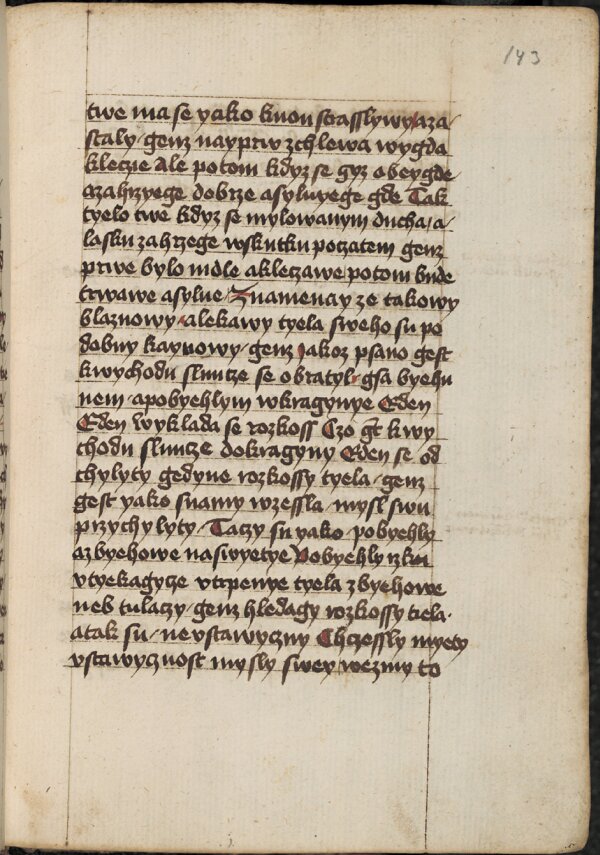 143
twe ma se yako kuon strasslywy aza
staly / genz nayprw zchlewa wygda
kleczie ale potom kdyz se gyz obeygde
azahrzyege dobrze asylnyege gde Tak
tyelo twe kdyz se mylowanym ducha / a
lasku zahrzege wskutku poczatem genz
prwe bylo mdle akleczawe potom bude
trwawe asylne / Znamenay ze takowy
blaznowy alekawy tyela sweho su po
dobny kaynowy / genz jakoz psano gest
kwychodu sluncze se obratyl / gsa byehu
nem / apobyehlym wkragynye Eden
Eden wyklada se rozkoss Czo gt kwy
chodu sluncze dokragyny Eden se od
chylyty gedyne rozkossy tyela / genz
gest yako snamy wzessla / mysl swu
przychylyty / Taczy su yako pobyehly
azbyehowe naswyetye Pobyehly rzku
vtyekagycze vtrpenye tyela zbyehowe
neb tulaczy / genz hledagy rozkossy tiela .
atak su / nevstawyczny Chczessly myety
vstawycznost mysly swey wezmy to